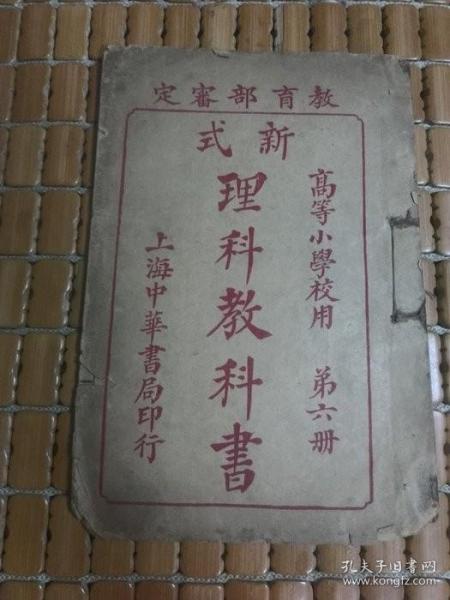 教育部審定
新式
高等小學校用　第六册
理科教科書
上海中華書局印行
孔夫子旧书网
www.kongfz.com